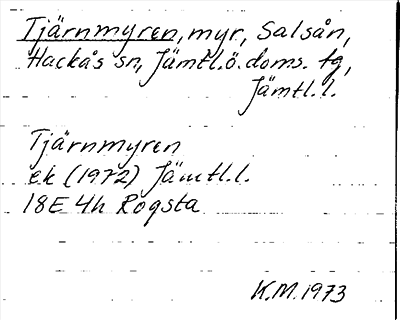 Tjärnmyren, myr, Salsån,
Hackås sn, Jämtl.ö.doms. tg,
Jämtl.l.
Tjärnmyren
ek (1972) Jämtl.l.
18E 4h Rogsta
K.M. 1973